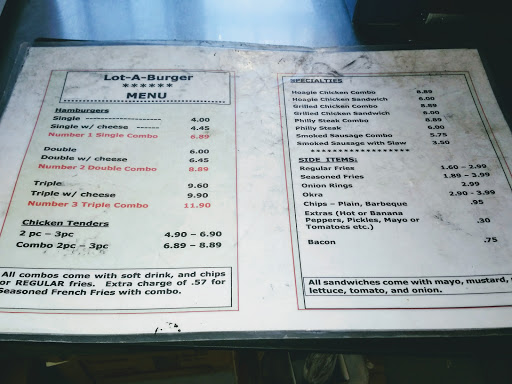 Lot-A-Burger
******
MENU
Hamburgers
Single ---------- 4.00
Single w/ cheese ------- 4.45
Number 1 Single Combo 6.89
Double 6.00
Double w/ cheese 6.45
Number 2 Double Combo 8.89
Triple 9.60
Triple w/ cheese 9.90
Number 3 Triple Combo 11.90
Chicken Tenders
2 pc – 3pc 4.90 – 6.90
Combo 2pc – 3pc 6.89 – 8.89
All combos come with soft drink, and chips
or REGULAR fries. Extra charge of .57 for
Seasoned French Fries with combo.
SPECIALTIES
Hoagie Chicken Combo 8.89
Hoagie Chicken Sandwich 6.00
Grilled Chicken Combo 8.89
Grilled Chicken Sandwich 6.00
Philly Steak Combo 8.89
Philly Steak 6.00
Smoked Sausage Combo 5.75
Smoked Sausage with Slaw 3.50
******************
SIDE ITEMS:
Regular Fries 1.60 – 2.99
Seasoned Fries 1.89 – 3.99
Onion Rings 2.99
Okra 2.90 - 3.99
Chips – Plain, Barbeque .95
Extras (Hot or Banana
Peppers, Pickles, Mayo or
Tomatoes etc.) .30
Bacon .75
All sandwiches come with mayo, mustard,
lettuce, tomato, and onion.